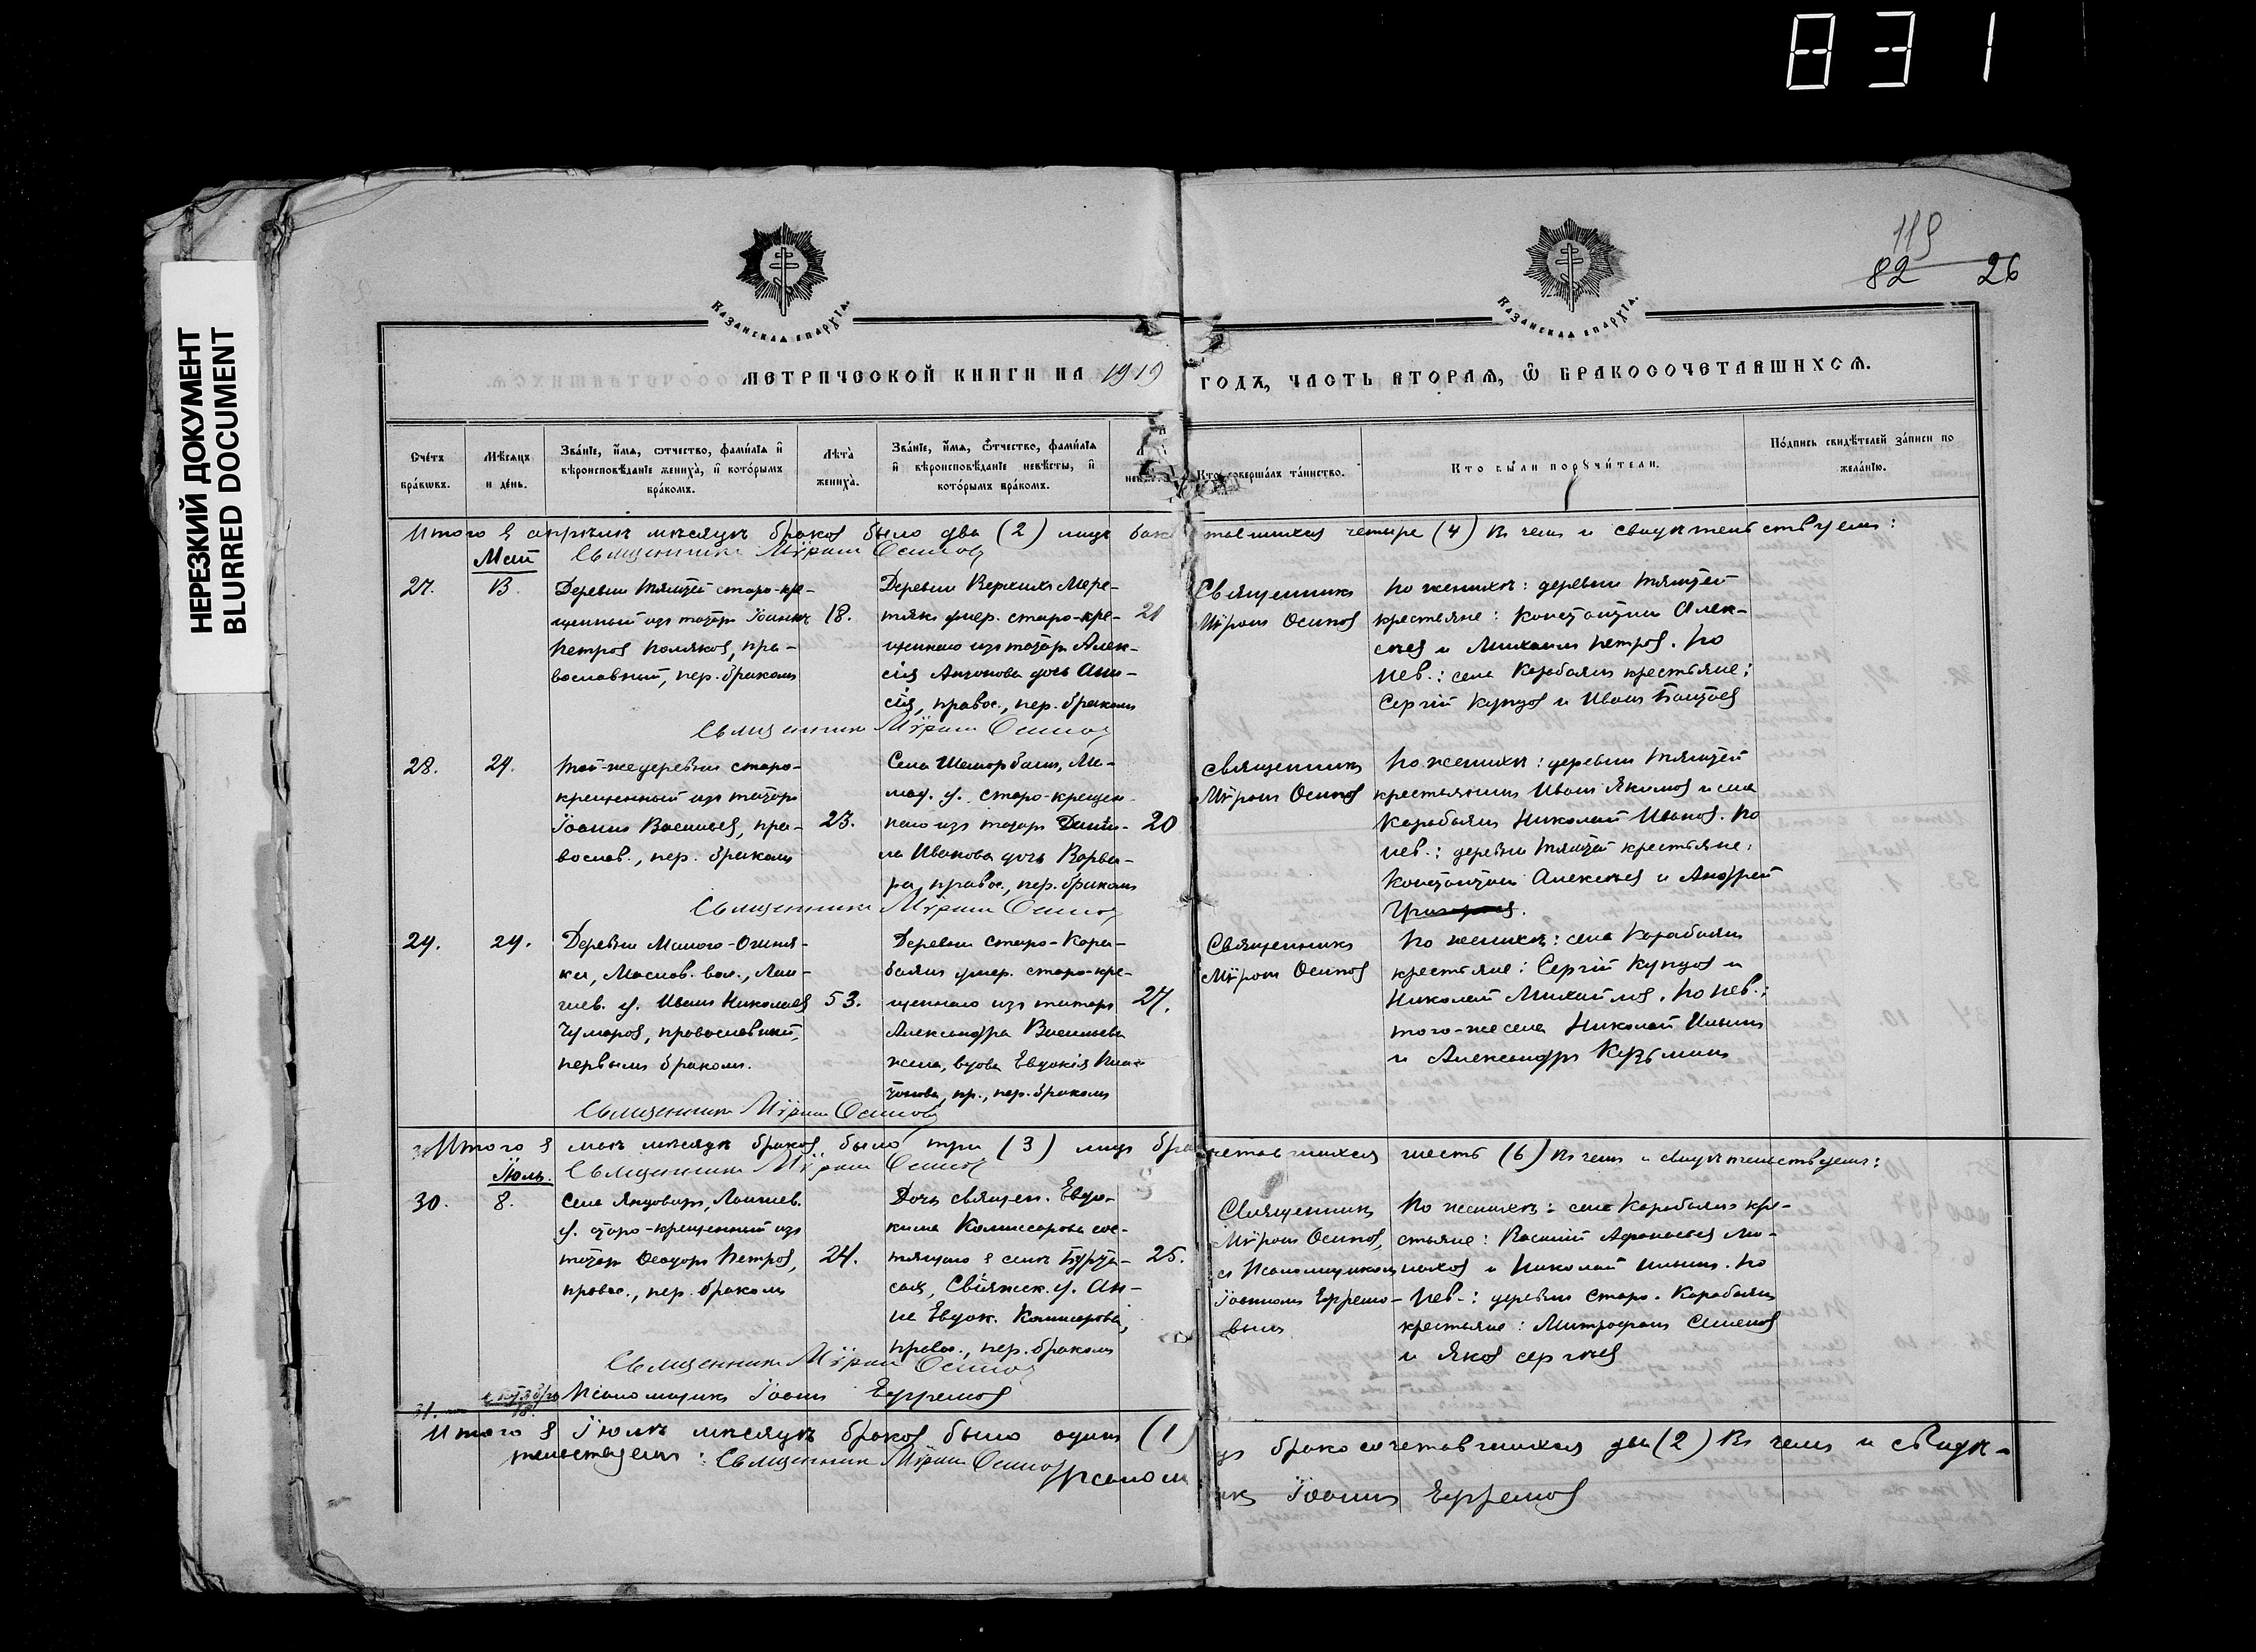 831
НЕРЕЗКИЙ ДОКУМЕНТ
BLURRED DOCUMENT
119
82 26
Казанская епархїа.
Казанская епархїа.
МЕТРИЧЕСКОЙ КНИГИ НА 1919 ГОДЪ, ЧАСТЬ ВТОРАЯ, Ѡ БРАКОСОЧЕТАВШИХСЯ.
Счетъ браковъ.
Мѣсяцъ и день.
Званіе, имя, отчество, фамилія и вѣроисповѣданіе жениха, и которымъ бракомъ.
Лѣта жениха.
Званіе, имя, отчество, фамилія и вѣроисповѣданіе невѣсты, и которымъ бракомъ.
Кто совершалъ таинство.
Кто были поручители.
Подпись свидѣтелей записи по желанію.
Итого въ апрѣлѣ мѣсяцѣ браковъ было два (2) лицъ четыре (4) Въ чемъ и свидѣтельствуемъ:
Священникъ Мѵронъ Осиповъ
Май
27.
Деревни Тямтей старо-кре-
щенный изъ татаръ Іоаннъ
Петровъ Поляковъ, пра-
вославный, пер. бракомъ
18.
Деревни Верхнихъ Мере-
тякъ умер. старо-кре-
щеннаго изъ татаръ Алек-
сія Антонова дочь Ани-
сія, правос., пер. бракомъ
21
Священникъ
Мѵронъ Осиповъ
По женихѣ: деревни Тямтей
крестьяне: Константинъ Алек-
сѣевъ и Михаилъ Петровъ. По
нев.: села Карабаянъ крестьяне:
Сергій Купцовъ и Иванъ
Священникъ Мѵронъ Осиповъ
28.
24.
Той-же деревни старо-
крещенный изъ татаръ
Іоаннъ Васильевъ, пра-
вослав., пер. бракомъ
23.
Села Шеморбашъ, Ма-
мад. у. старо-крещен-
наго изъ татаръ Дани-
ла Иванова дочь Варва-
ра, правос., пер. бракомъ
20
Священникъ
Мѵронъ Осиповъ
По женихѣ: деревни Тямтей
крестьянинъ Иванъ Якимовъ и села
Карабаянъ Николай Ивановъ. По
нев.: деревни Тямтей крестьяне:
Константинъ Алексѣевъ и Андрей
Священникъ Мѵронъ Осиповъ
29.
24.
Деревни Малого-
ка, Маслов. вол., Лаи-
шев. у. Иванъ Николаевъ
Чумаровъ, православный,
первымъ бракомъ.
53.
Деревни Старо-Кара-
баянъ умер. старо-кре-
щеннаго изъ татаръ
Александра Васильева
жена, вдова Евдокія Пла-
тонова, пр., пер. бракомъ
27.
Священникъ
Мѵронъ Осиповъ
По женихѣ: села Карабаянъ
крестьяне: Сергій Купцовъ и
Николай Михайловъ. По нев.:
того-же села Николай Ильинъ
и Александръ Кузьминъ
Священникъ Мѵронъ Осиповъ
Итого въ маѣ мѣсяцѣ браковъ было три (3) лицъ шесть (6) Въ чемъ и свидѣтельствуемъ:
Священникъ Мѵронъ Осиповъ
Іюль.
30.
8.
Села Янцоваръ, Лаишев.
у. старо-крещенный изъ
татаръ Ѳеодоръ Петровъ,
правос., пер. бракомъ
24.
Дочь священ. Евдо-
кима Комиссарова сос-
тящаго въ селѣ
Свіяжск. у. Ан-
на Евдок. Комиссарова,
правос., пер. бракомъ
25.
Священникъ
Мѵронъ Осиповъ,
съ Псаломщикомъ
Іоанномъ Ефремо-
вымъ
По женихѣ: села Карабаянъ кре-
стьяне: Василій Афанасьевъ
и Николай Ильинъ. По
нев.: деревни Старо-Карабаянъ
крестьяне: Митрофанъ Семеновъ
и Яковъ Сергѣевъ
Священникъ Мѵронъ Осиповъ
Псаломщикъ Іоаннъ Ефремовъ
31.
18.
Итого въ Іюлѣ мѣсяцѣ браковъ было одинъ (1) бракосочетавшихся два (2) Въ чемъ и свидѣ-
тельствуемъ: Священникъ Мѵронъ Осиповъ
Псаломщикъ Іоаннъ Ефремовъ